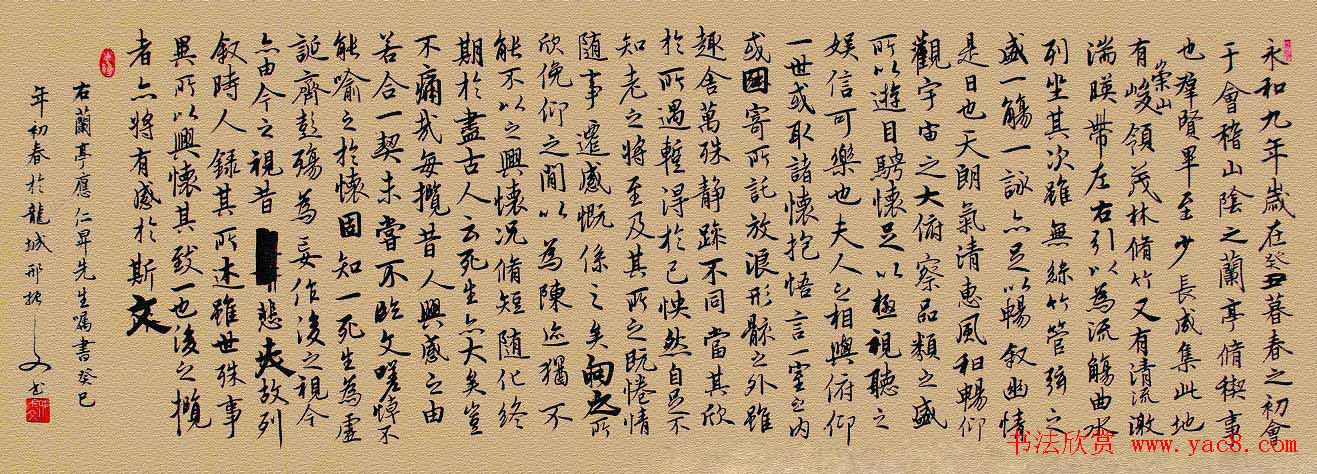 永和九年歲在癸丑暮春之初會
于會稽山陰之蘭亭脩稧事
也羣賢畢至少長咸集此地
有崇山峻領茂林脩竹又有清流激
湍暎帶左右引以為流觴曲水
列坐其次雖無絲竹管弦之
盛一觴一詠亦足以暢叙幽情
是日也天朗氣清惠風和暢仰
觀宇宙之大俯察品類之盛
所以遊目騁懷足以極視聽之
娛信可樂也夫人之相與俯仰
一世或取諸懷抱悟言一室之內
或因寄所託放浪形骸之外雖
趣舍萬殊静躁不同當其欣
於所遇蹔得於己怏然自足不
知老之將至及其所之既惓情
随事遷感慨係之矣向之所
欣俛仰之閒以為陳迹猶不
能不以之興懷况脩短随化終
期於盡古人云死生亦大矣豈
不痛哉每攬昔人興感之由
若合一契未嘗不臨文嗟悼不
能喻之於懷固知一死生為虛
誕齊彭殤為妄作後之視今
亦由今之視昔悲夫故列
叙時人錄其所述雖世殊事
異所以興懷其致一也後之攬
者亦將有感於斯文
右蘭亭應仁昇先生囑書癸巳
年初春於龍城邢
书法欣赏 www.yac8.com